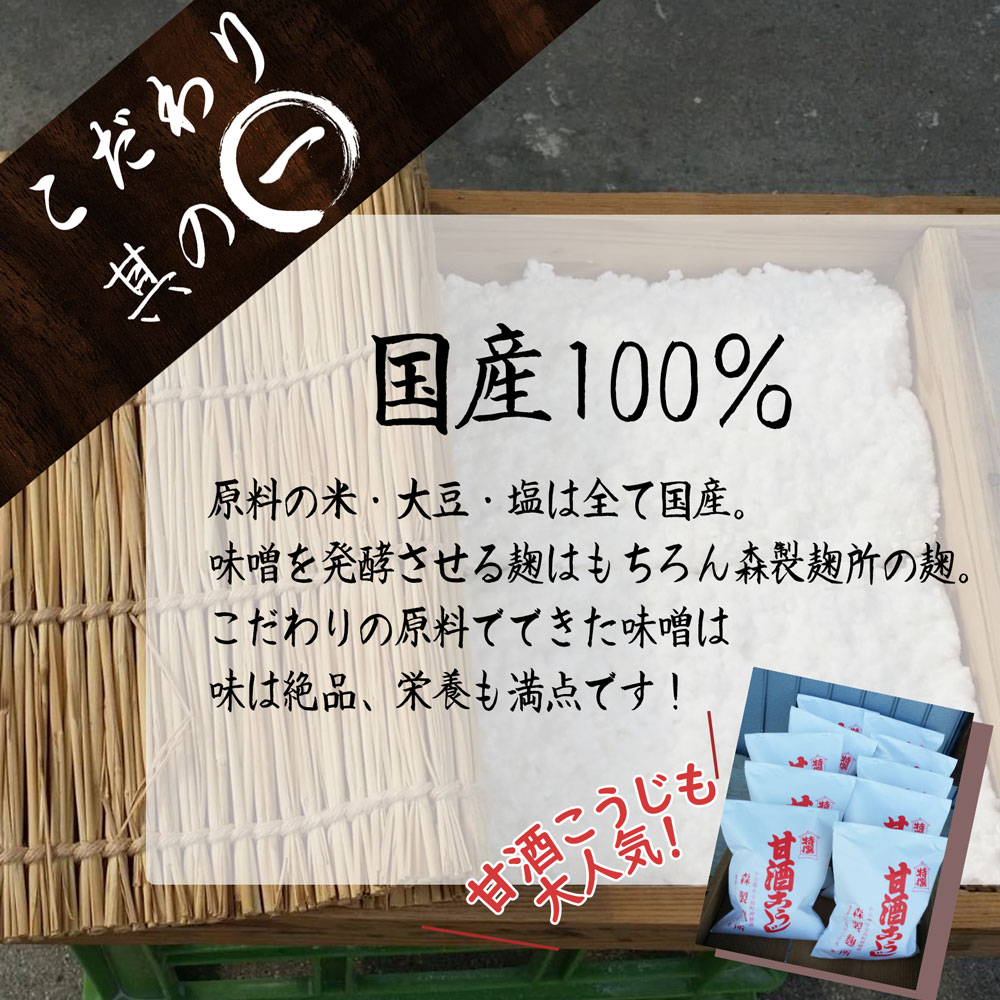 こだわり
其の一
国産100%
原料の米・大豆・塩は全て国産。
味噌を発酵させる麹はもちろん森製麹所の麹。
こだわりの原料でできた味噌は
味は絶品、栄養も満点です!
甘酒こうじも
大人気!
特撰
甘酒こうじ
森製麹所
特撰
甘酒こうじ
森製麹所